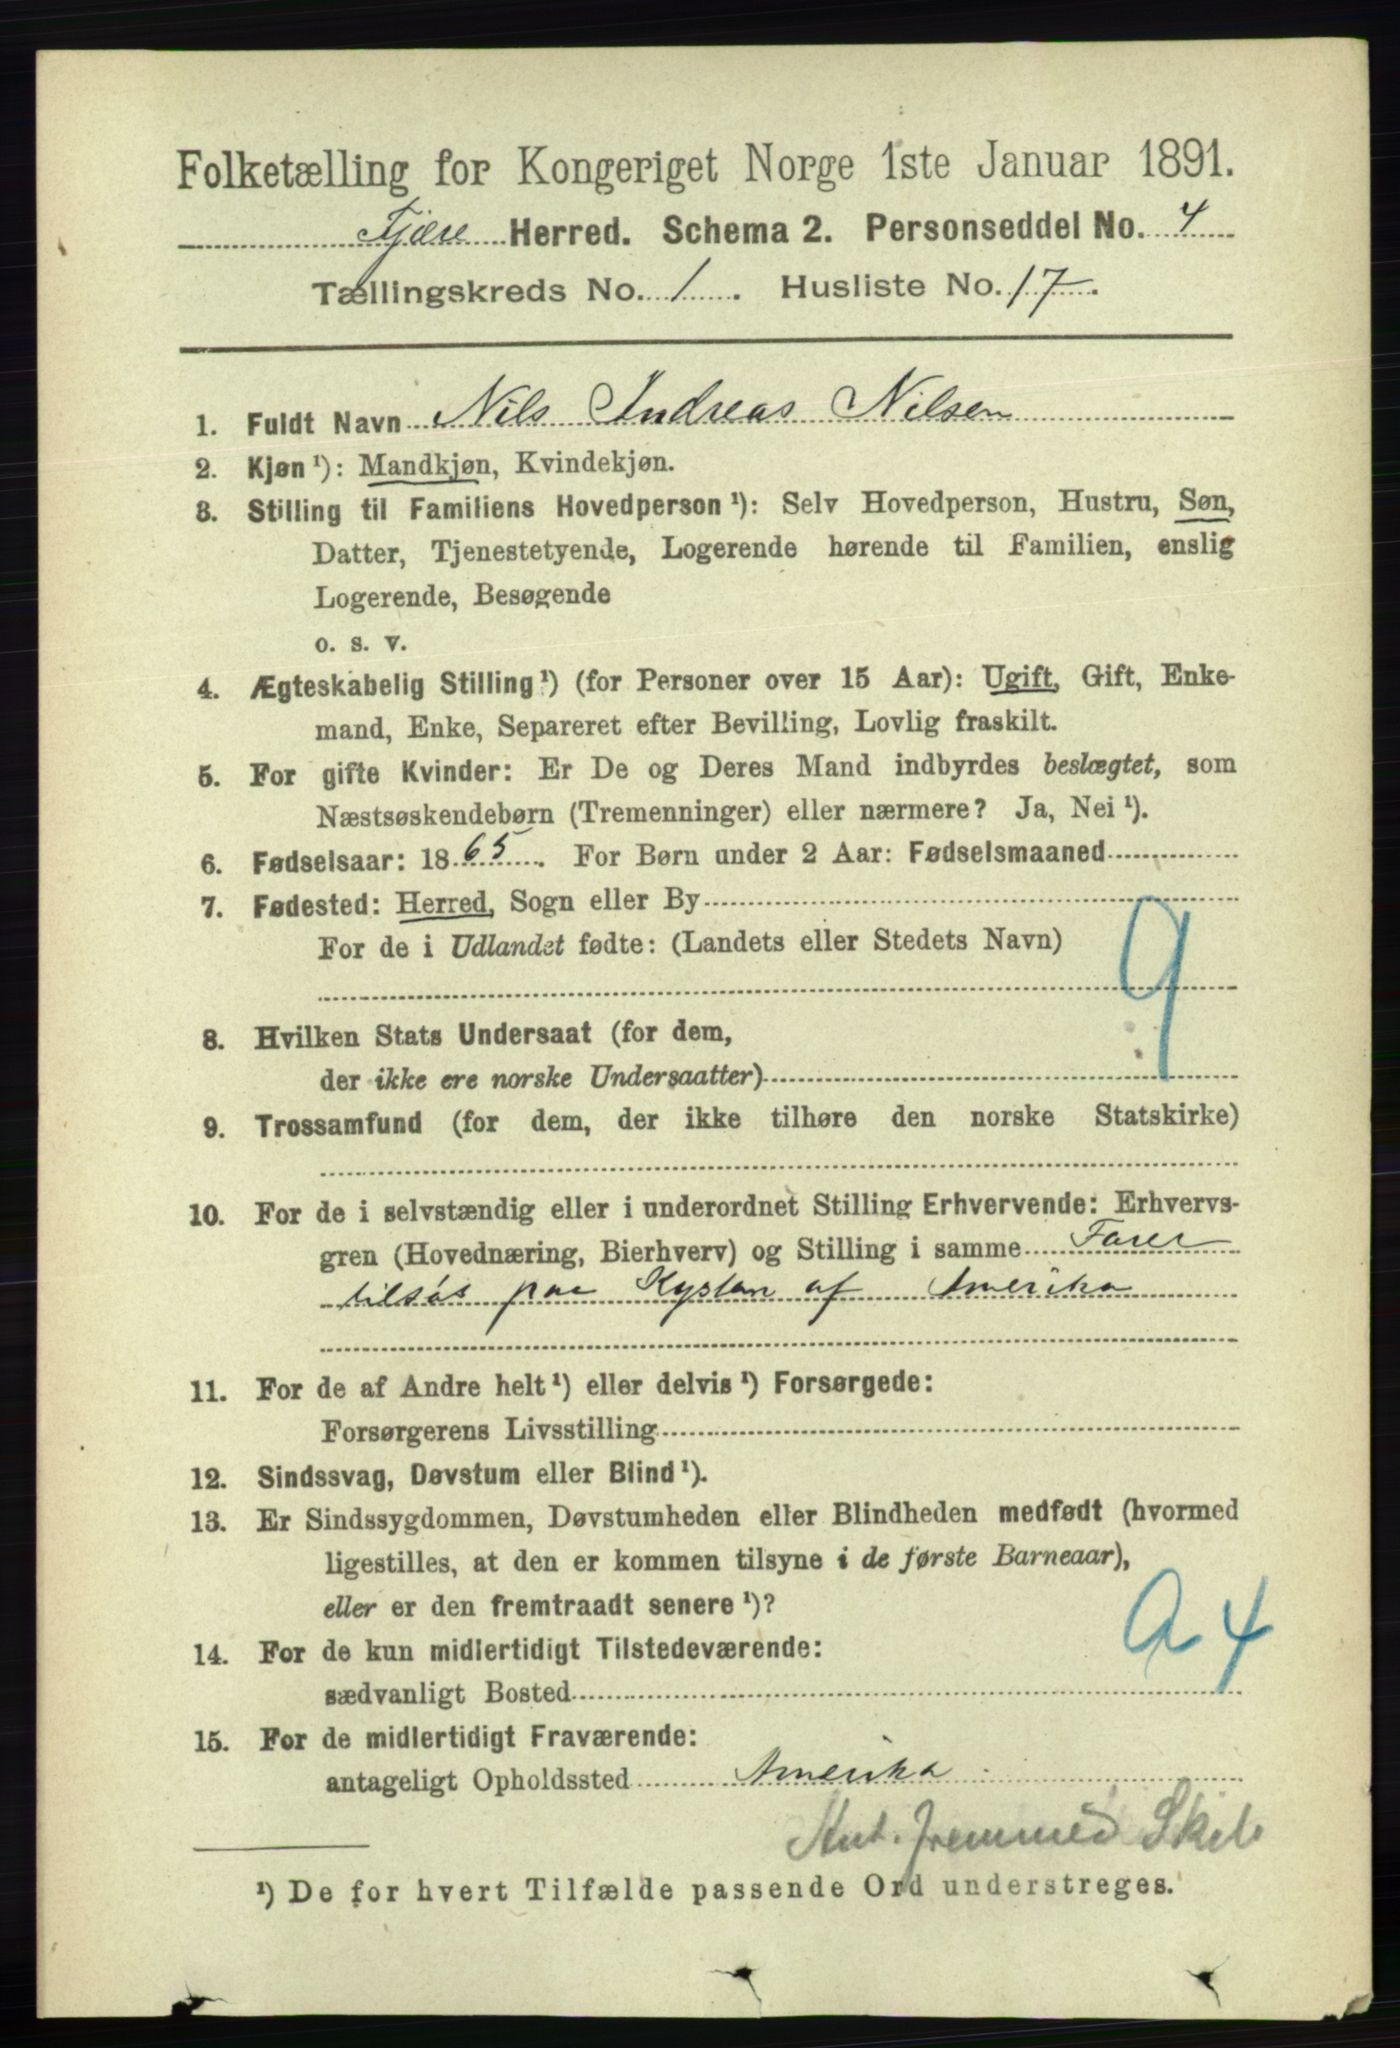 Folketælling for Kongeriget Norge 1ste Januar 1891.
Fjære Herred. Schema 2. Personseddel No. 4
Tællingskreds No. 1. Husliste No. 17.
1. Fuldt Navn Nils Andreas Nilsen
2. Kjøn ¹): Mandkjøn, Kvindekjøn.
3. Stilling til Familiens Hovedperson ¹): Selv Hovedperson, Hustru, Søn,
Datter, Tjenestetyende, Logerende hørende til Familien, enslig
Logerende, Besøgende
o. s. v.
4. Ægteskabelig Stilling ¹) (for Personer over 15 Aar): Ugift, Gift, Enke-
mand, Enke, Separeret efter Bevilling, Lovlig fraskilt.
5. For gifte Kvinder: Er De og Deres Mand indbyrdes beslægtet, som
Næstsøskendebørn (Tremenninger) eller nærmere? Ja, Nei ¹).
6. Fødselsaar: 1865. For Børn under 2 Aar: Fødselsmaaned
7. Fødested: Herred, Sogn eller By
For de i Udlandet fødte: (Landets eller Stedets Navn)
9
8. Hvilken Stats Undersaat (for dem,
der ikke ere norske Undersaatter)
9. Trossamfund (for dem, der ikke tilhøre den norske Statskirke)
10. For de i selvstændig eller i underordnet Stilling Erhvervende: Erhvervs-
gren (Hovednæring, Bierhverv) og Stilling i samme Farer
tilsøs paa Kysten af Amerika
11. For de af Andre helt ¹) eller delvis ¹) Forsørgede:
Forsørgerens Livsstilling
12. Sindssvag, Døvstum eller Blind ¹).
13. Er Sindssygdommen, Døvstumheden eller Blindheden medfødt (hvormed
ligestilles, at den er kommen tilsyne i de første Barneaar),
eller er den fremtraadt senere ¹)?
a 4
14. For de kun midlertidigt Tilstedeværende:
sædvanligt Bosted
15. For de midlertidigt Fraværende:
antageligt Opholdssted Amerika
Ant. fremmed Skib
¹) De for hvert Tilfælde passende Ord understreges.